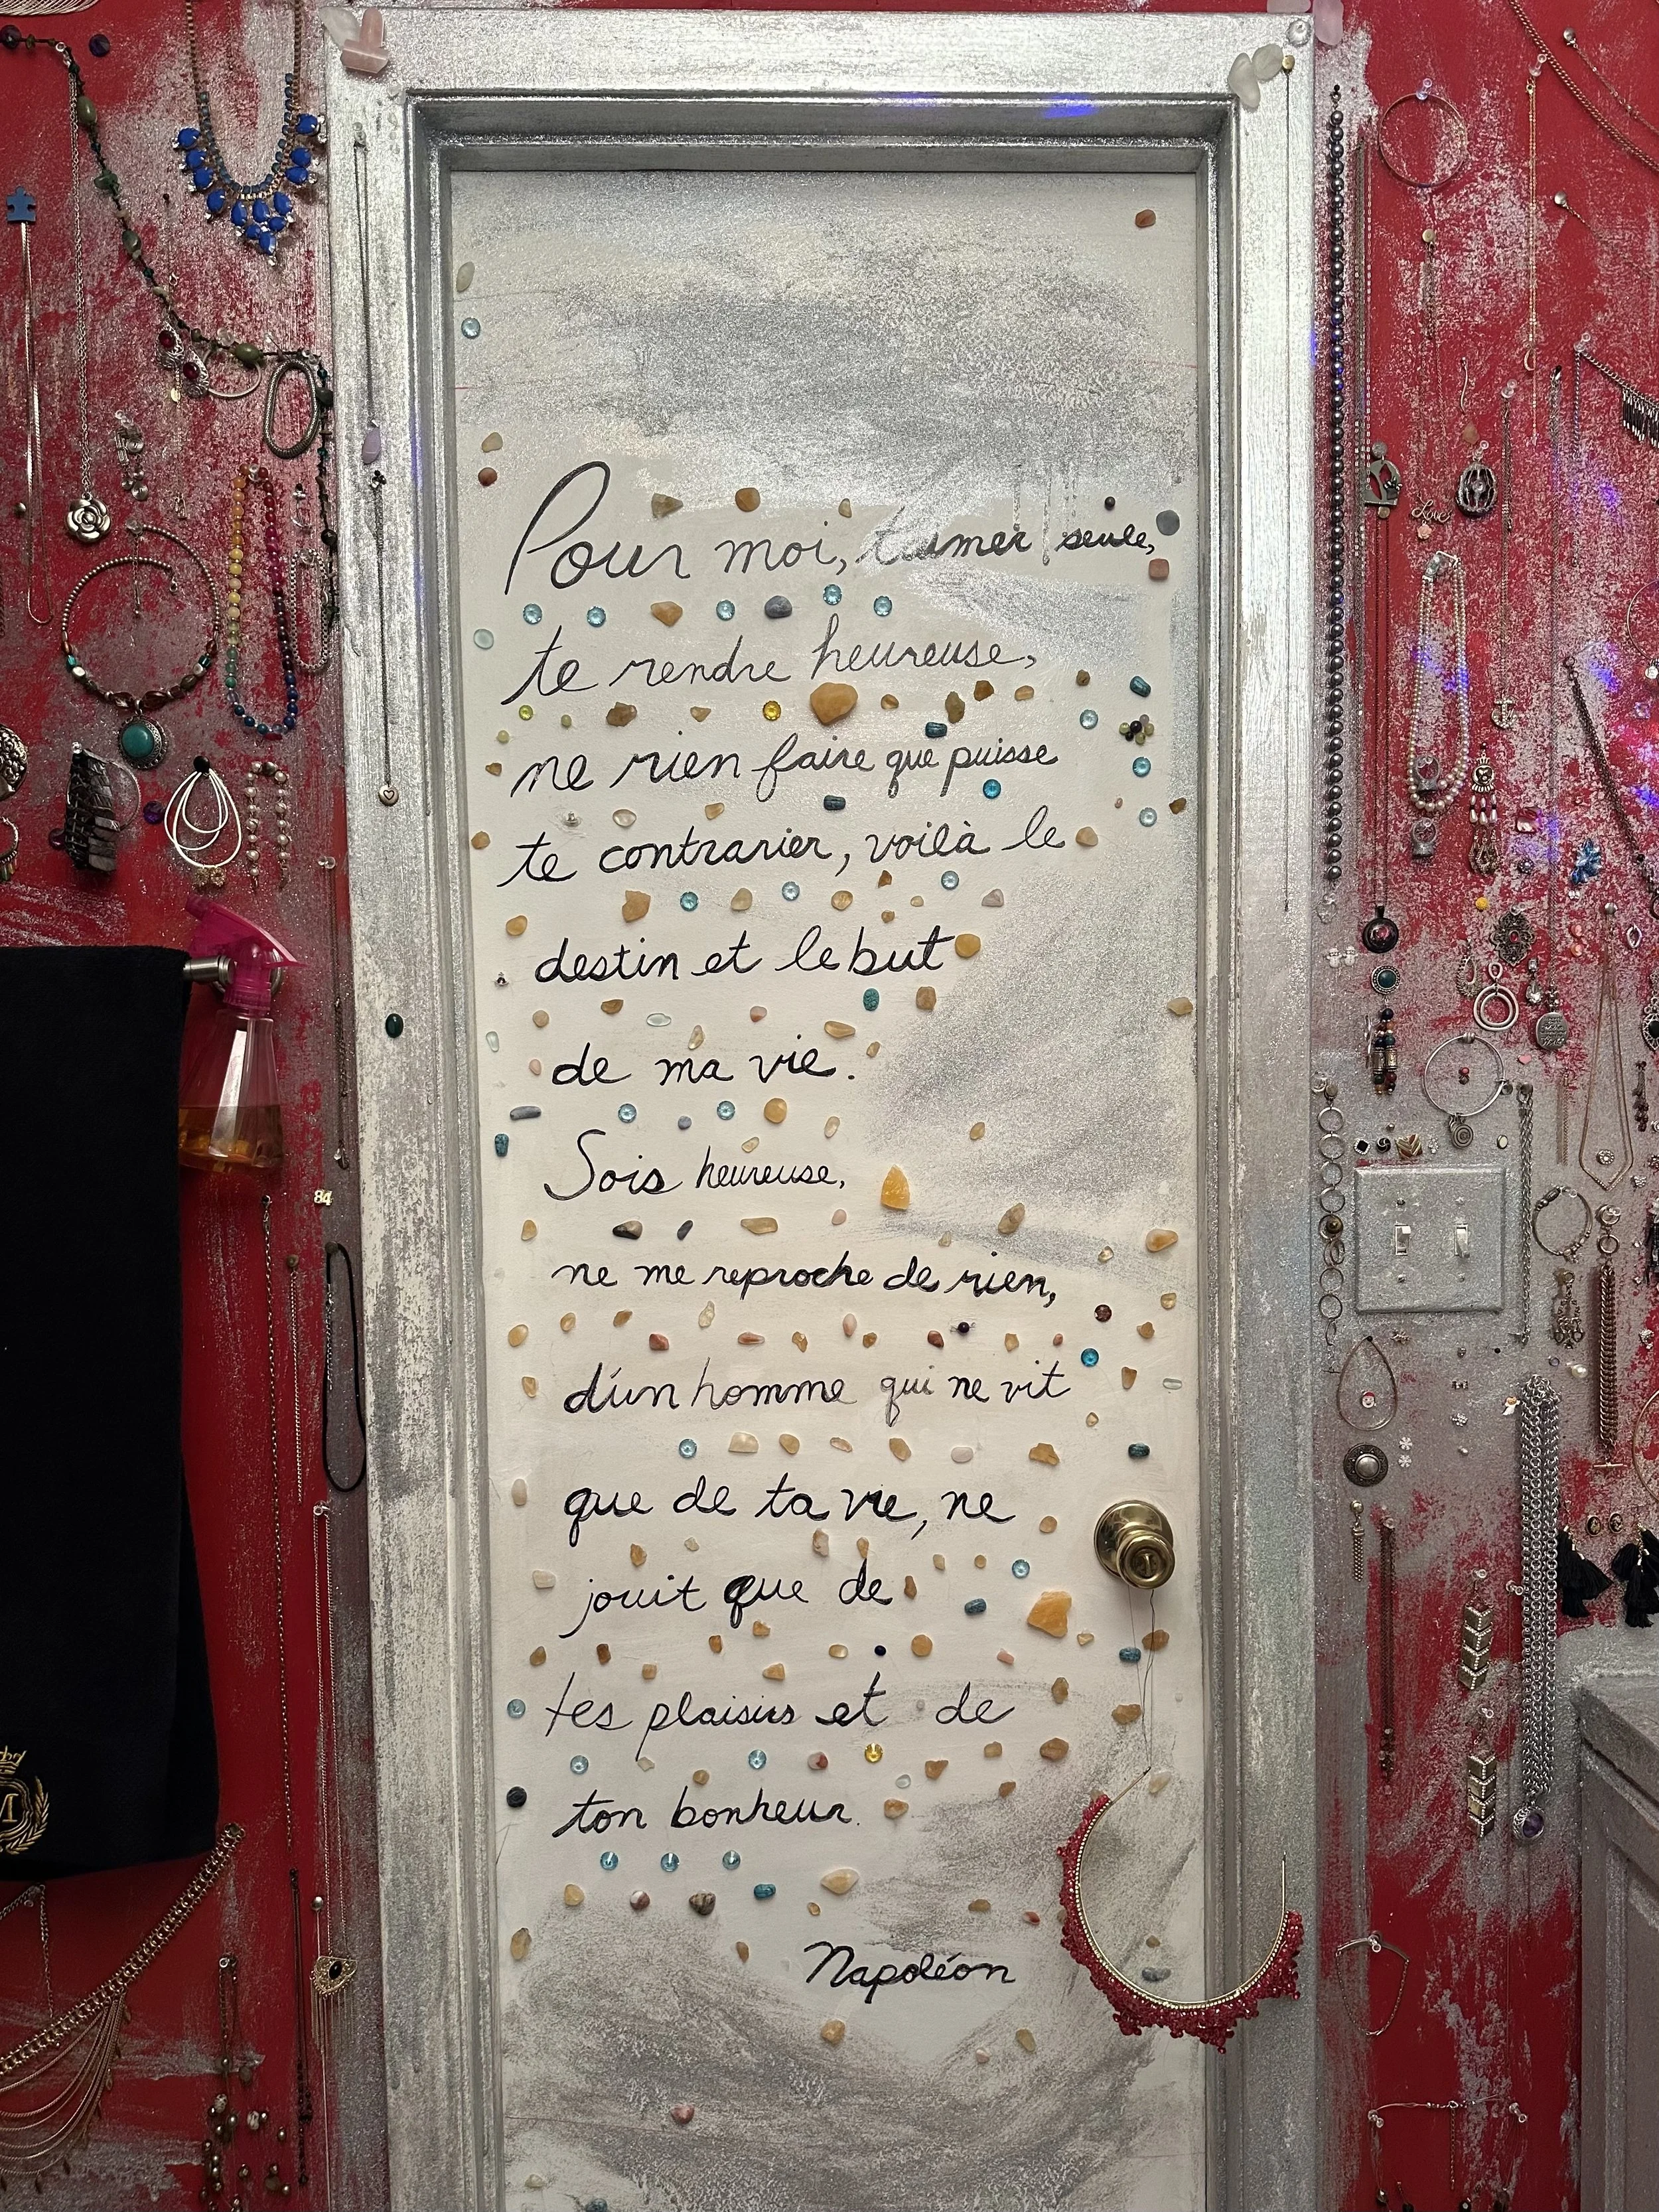 Pour moi, t'aimer seule,
te rendre heureuse,
ne rien faire que puisse
te contrarier, voilà le
destin et le but
de ma vie.
Sois heureuse,
ne me reproche de rien,
d'un homme qui ne vit
que de ta vie, ne
jouit que de
tes plaisirs et de
ton bonheur.
Napoléon
84
Love